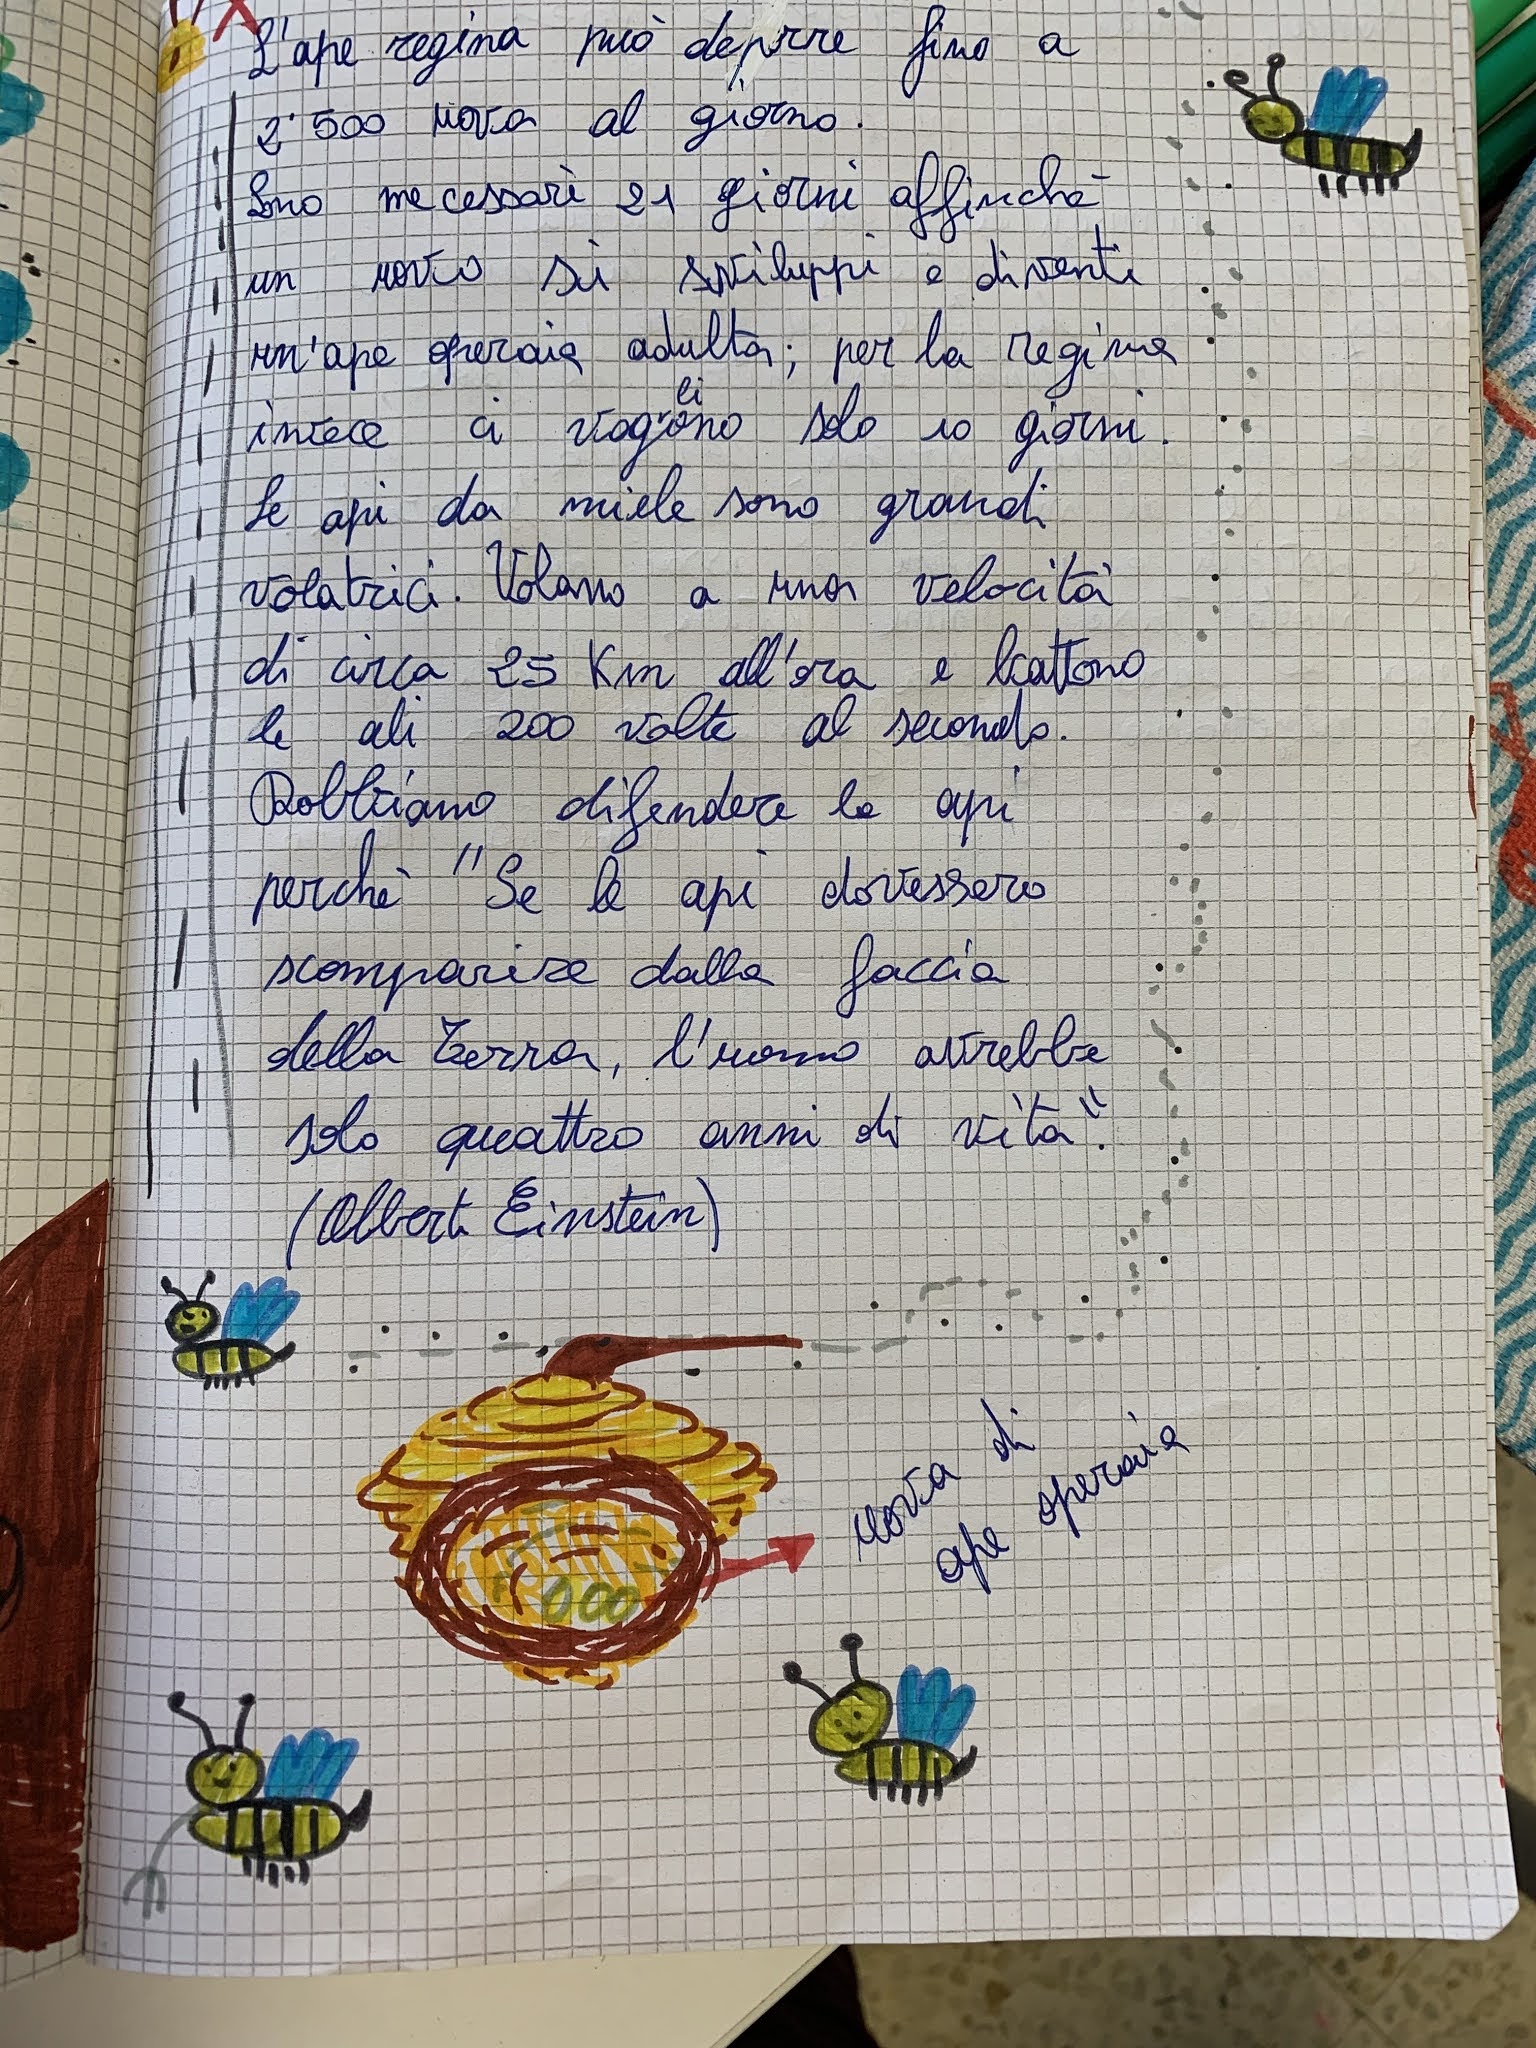 L'ape regina può deporre fino a
2'500 uova al giorno.
Sono necessari 21 giorni affinchè
un uovo si sviluppi e diventi
un'ape operaia adulta; per la regina
invece ci vogliono solo 10 giorni.
Le api da miele sono grandi
volatrici. Volano a una velocità
di circa 25 Km all'ora e battono
le ali 200 volte al secondo.
Dobbiamo difendere le api
perchè "Se le api dovessero
scomparire dalla faccia
della Terra, l'uomo avrebbe
solo quattro anni di vita".
(Albert Einstein)
uova di
ape operaia